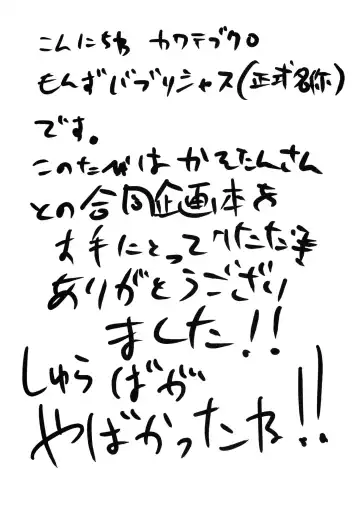 こんにちわ カワテブクロ
もんずパブリシャス(正式名称)
です。
このたびは かそたんさん
との合同企画本を
お手にとっていただき
ありがとうござい
ました!!
しゅらばが
やばかったね!!